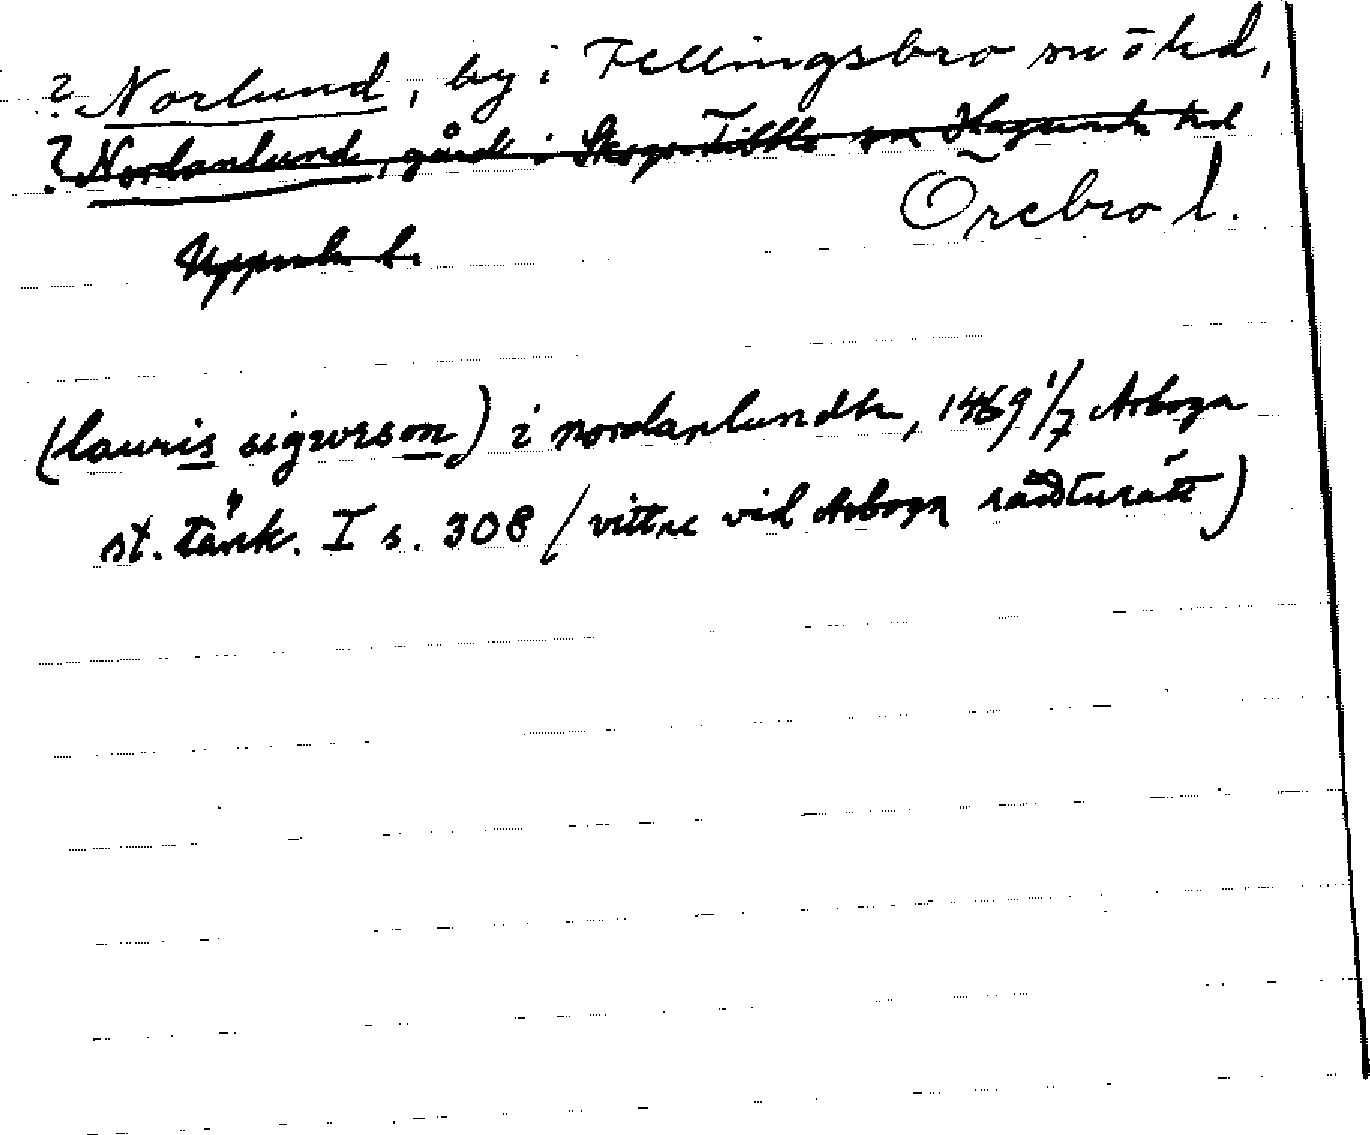 ? Norlund, by i Fellingsbro sn o hd,
? Nordanlund, gård i Skogs-Tibble sn Hagunda hd
Örebro l.
Uppsala l.
(lauris sigwrson) i nordanlundh, 1469 1/7 Arboga
st. tänk. I s. 308 (vittne vid Arboga rådsturätt)